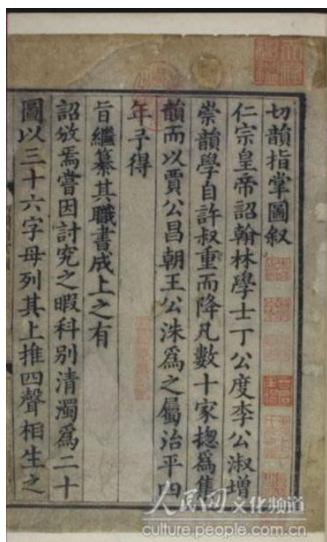 切韻指掌圖叙
仁宗皇帝詔翰林學士丁公度李公淑增
崇韻學自許叔重而降凡數十家揔爲集
韻而以賈公昌朝王公洙爲之屬治平四
年予得
旨繼纂其職書成上之有
詔攽焉嘗因討究之暇科别清濁爲二十
圖以三十六字母列其上推四聲相生之
人民网文化频道
culture.people.com.cn